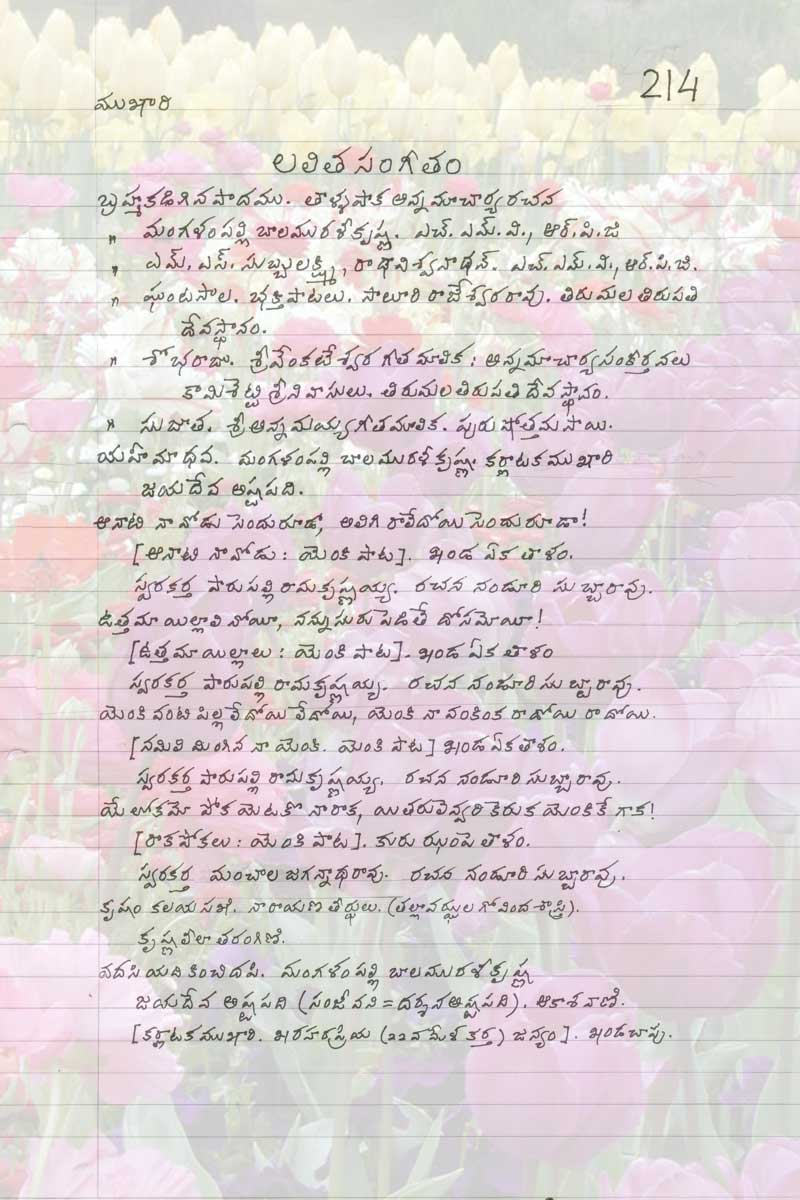 ముఖారి
214
లలిత సంగీతం
బ్రహ్మకడిగిన పాదము. తాళ్ళపాక అన్నమాచార్య రచన
" మంగళంపల్లి బాలమురళీకృష్ణ. ఎచ్. ఎమ్. వి., ఆర్. పి. జి
" ఎమ్. ఎస్. సుబ్బులక్ష్మి, రాధావిశ్వనాథన్. ఎచ్. ఎమ్. వి., ఆర్. పి. జి.
" ఘంటసాల. భక్తి పాటలు. సాలూరి రాజేశ్వరరావు. తిరుమల తిరుపతి
దేవస్థానం.
" శోభరాజు. శ్రీవేంకటేశ్వర గీతమాలిక : అన్నమాచార్య సంకీర్తనలు
కామిశెట్టి శ్రీనివాసులు. తిరుమల తిరుపతి దేవస్థానం.
" సుజాత. శ్రీ అన్నమయ్య గీతమాలిక. పురుషోత్తమ సాయి.
యహిమాధవ. మంగళంపల్లి బాలమురళీకృష్ణ. కర్ణాటక ముఖారి
జయదేవ అష్టపది.
ఆనాటి నా వోడు సెందురూడా, అలిగి రాలేదోయి సెందురూడా!
[ఆనాటి నావోడు : యెంకి పాట]. ఖండ ఏక తాళం.
స్వరకర్త పారుపల్లి రామకృష్ణయ్య. రచన నండూరి సుబ్బారావు.
ఉత్తమా యిల్లాలి నోయీ, నన్నుసురు పెడితే దోసమోయీ!
[ఉత్తమా యిల్లాలు : యెంకి పాట]. ఖండ ఏక తాళం
స్వరకర్త పారుపల్లి రామకృష్ణయ్య. రచన నండూరి సుబ్బారావు.
యెంకి వంటి పిల్లలేదోయి లేదోయి, యెంకి నా వంకింక రాదోయి రాదోయి.
[నమిలి మింగిన నా యెంకి. యెంకి పాట] ఖండ ఏక తాళం.
స్వరకర్త పారుపల్లి రామకృష్ణయ్య. రచన నండూరి సుబ్బారావు.
యే లోకమో పోక యెటకొ నా రాక, యితరులెవ్వరి కెరుక యెంకికే గాక!
[రాకపోకలు : యెంకి పాట]. కురు ఝంపె తాళం.
స్వరకర్త మంచాల జగన్నాధరావు. రచన నండూరి సుబ్బారావు.
కృష్ణం కలయ సఖి. నారాయణ తీర్థులు. (తల్లావఝ్ఝుల గోవింద శాస్త్రి).
కృష్ణలీలా తరంగిణి.
వదసి యది కించిదపి. మంగళంపల్లి బాలమురళీకృష్ణ
జయదేవ అష్టపది (సంజీవని = దర్శన అష్టపది). ఆకాశవాణి.
[కర్ణాటక ముఖారి. ఖరహరప్రియ (22వ మేళకర్త) జన్యం]. ఖండచాపు.